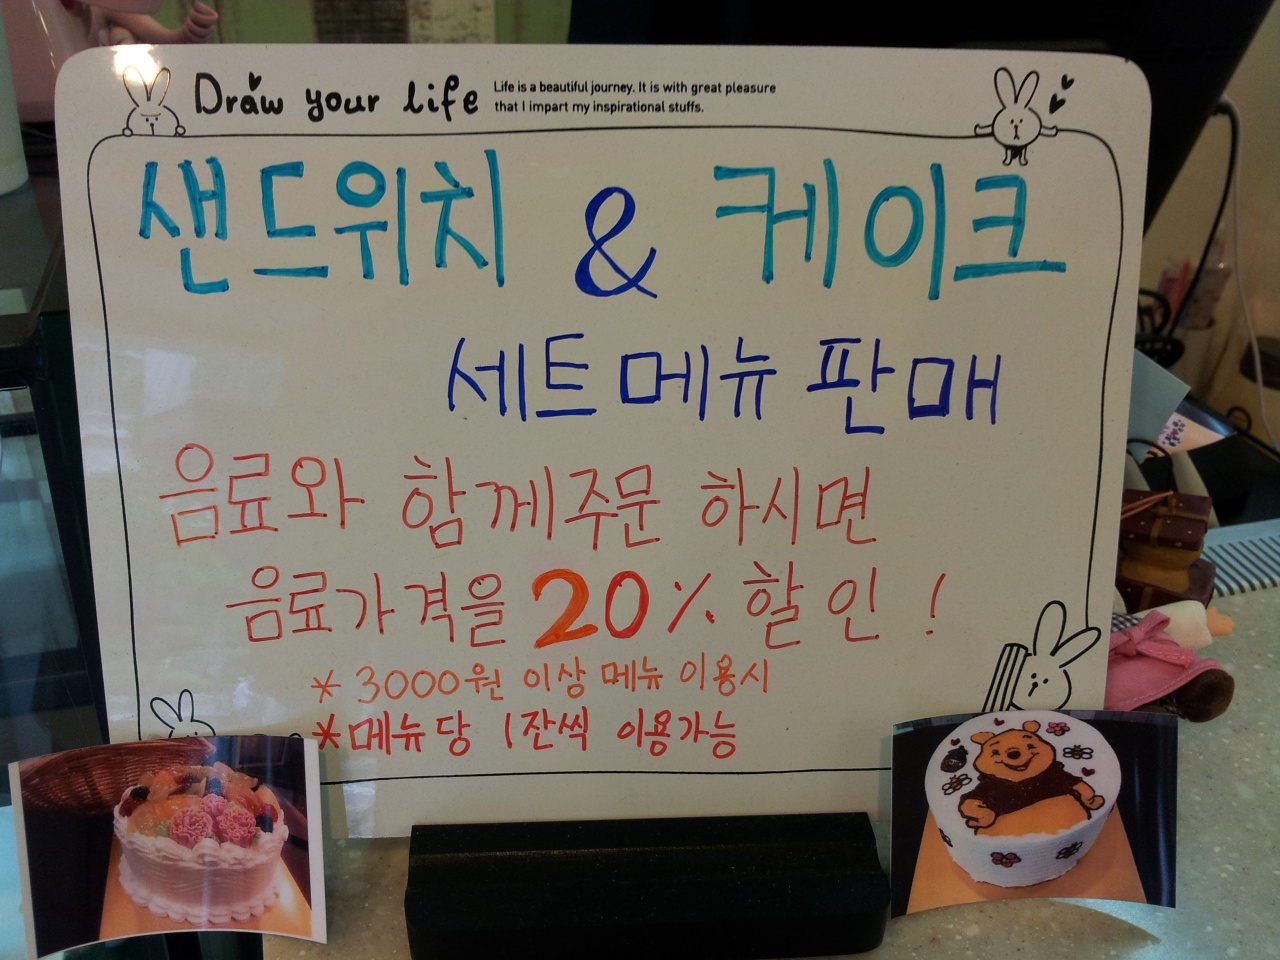 Draw your life
Life is a beautiful journey. It is with great pleasure
that I impart my inspirational stuffs.
샌드위치 & 케이크
세트메뉴 판매
음료와 함께주문 하시면
음료가격을 20% 할인!
* 3000원 이상 메뉴 이용시
* 메뉴당 1잔씩 이용가능